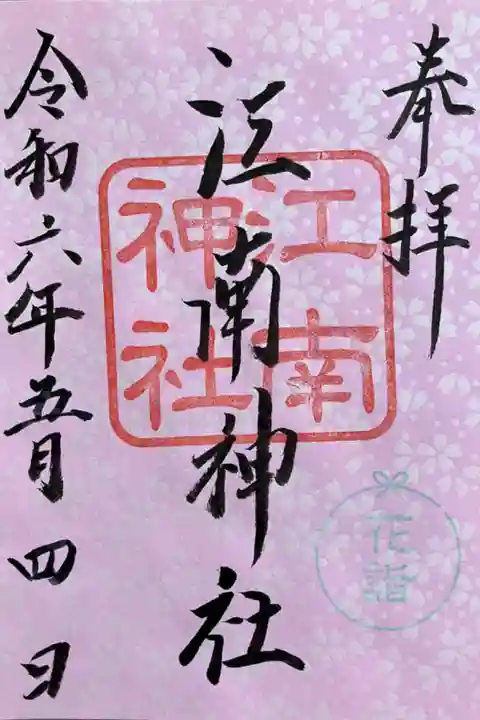 奉拝
江南神社
江南
神社
花詣
令和六年五月四日